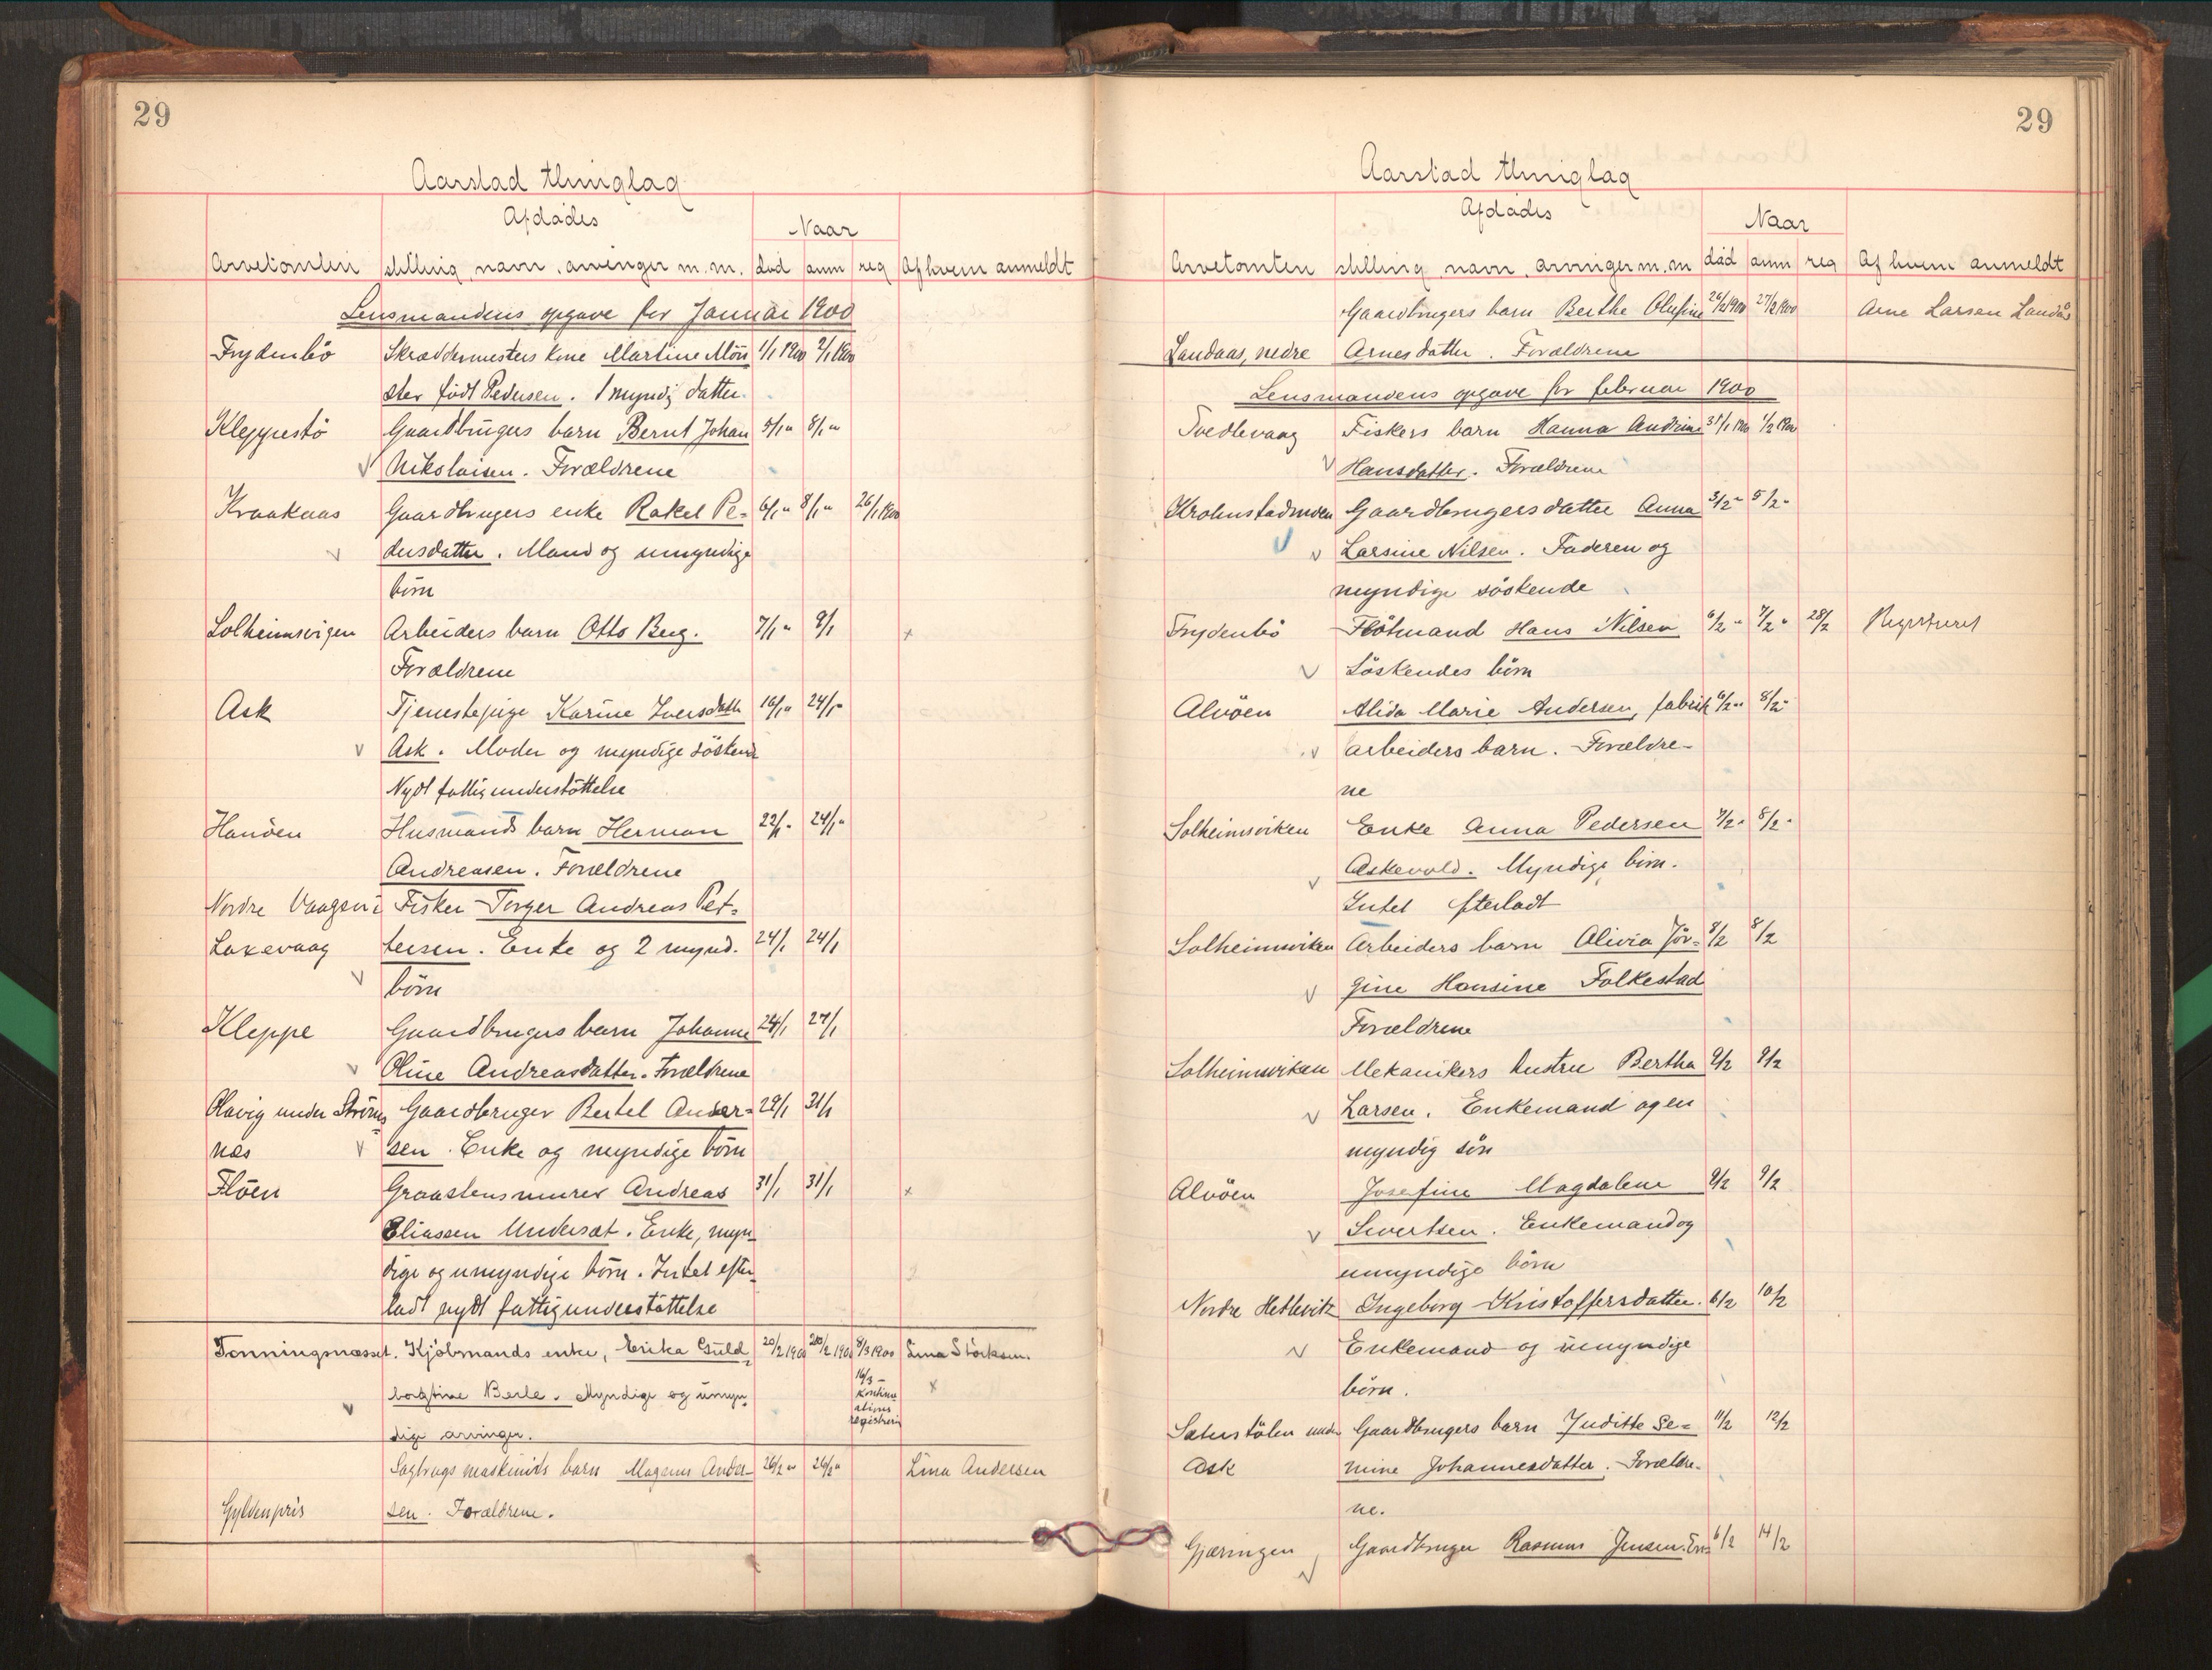 29
Aarstad thinglag
Afdødes
Naar
Arvetomten stilling, navn, arvinger m. m. død anm reg Af hvem anmeldt
Lensmandens opgave for Januar 1900
Frydenbö Skræddermesters kone Martine Mön 1/1 1900 2/1 1900
ster født Pedersen. 1 myndig datter.
Kleppestö Gaardbrugers barn Bernt Johan 5/1 " 8/1 "
Nikolaisen. Forældrene
Kraakaas Gaardbrugers enke Rakel Pe- 6/1 " 8/1 " 26/1 1900
dersdatter. Mand og umyndige
börn
Solheimsvigen Arbeiders barn Otto Berg. 7/1 " 9/1
Forældrene
Ask Tjenestepige Karine Iversdatte 16/1 " 24/1 "
Ask. Moder og myndige söskend
Nydt fattigunderstöttelse
Hanöen Husmands barn Herman 22/1 " 24/1 "
Andreasen. Forældrene
Nordre Vaagen i Fisker Torger Andreas Pet-
Laxevaag tersen. Enke og 2 mynd. 24/1 24/1
börn
Kleppe Gaardbrugers barn Johanne 24/1 27/1
Oline Andreasdatter. Forældrene
Olavig under Ström Gaardbruger Bertel Ander- 29/1 31/1
næs sen. Enke og myndige börn
Flöen Graastensmurer Andreas 31/1 31/1
Eliassen Undersæt. Enke, myn-
dige og umyndige börn. Intet efter
ladt nydt fattigunderstöttelse
Tonningsnæsset. Kjöbmands enke, Erika Guld 20/2 1900 20/2 1900 8/3 1900 Lina Störksen.
borgfine Berle. Myndige og umyn- 16/3 - kontinu
ations
registrering
dige arvinger.
Sagbrugs maskinists barn Magnus Ander- 26/2 " 26/2 " Lina Andersen
Gyldenpris sen. Forældrene.
29
Aarstad thinglag
Afdødes
Naar
Arvetomten stilling, navn, arvinger m. m død anm reg Af hvem anmeldt
Gaardbrugers barn Berthe Olufine 26/2 1900 27/2 1900 Arne Larsen Landås
Landaas, nedre Arnesdatter. Forældrene
Lensmandens opgave for februar 1900
Tvedtevaag Fiskers barn Hanna Andrine 31/1 1900 1/2 1900
Hansdatter. Forældrene
Krohnstadmoen Gaardbrugersdatter Anna 3/2 " 5/2 "
Larsine Nilsen. Faderen og
myndige söskende
Frydenbö Flötmand Hans Nilsen 6/2 " 7/2 " 28/2 Registreret
Söskendes börn
Alvöen Alida Marie Andersen, fabrik 6/2 " 8/2 "
arbeiders barn. Forældre-
ne
Solheimsviken Enke Anna Pedersen 7/2 " 8/2 "
Askevold. Myndige börn.
Intet efterladt
Solheimsviken Arbeiders barn Alivia Jör- 8/2 8/2
gine Hansine Folkestad
Forældrene
Solheimsviken Mekanikers hustru Bertha 9/2 9/2
Larsen. Enkemand og en
myndig sön
Alvöen Josefine Magdalene 9/2 9/2
Sivertsen. Enkemand og
umyndige börn
Nordre Hetlevik Ingeborg Kristoffersdatter. 6/2 10/2
Enkemand og umyndige
börn.
Sæterstölen under Gaardbrugers barn Juditte Se- 11/2 12/2
Ask mine Johannesdatter. Forældre-
ne.
Gjæringen Gaardbruger Rasmus Jensen. 6/2 14/2